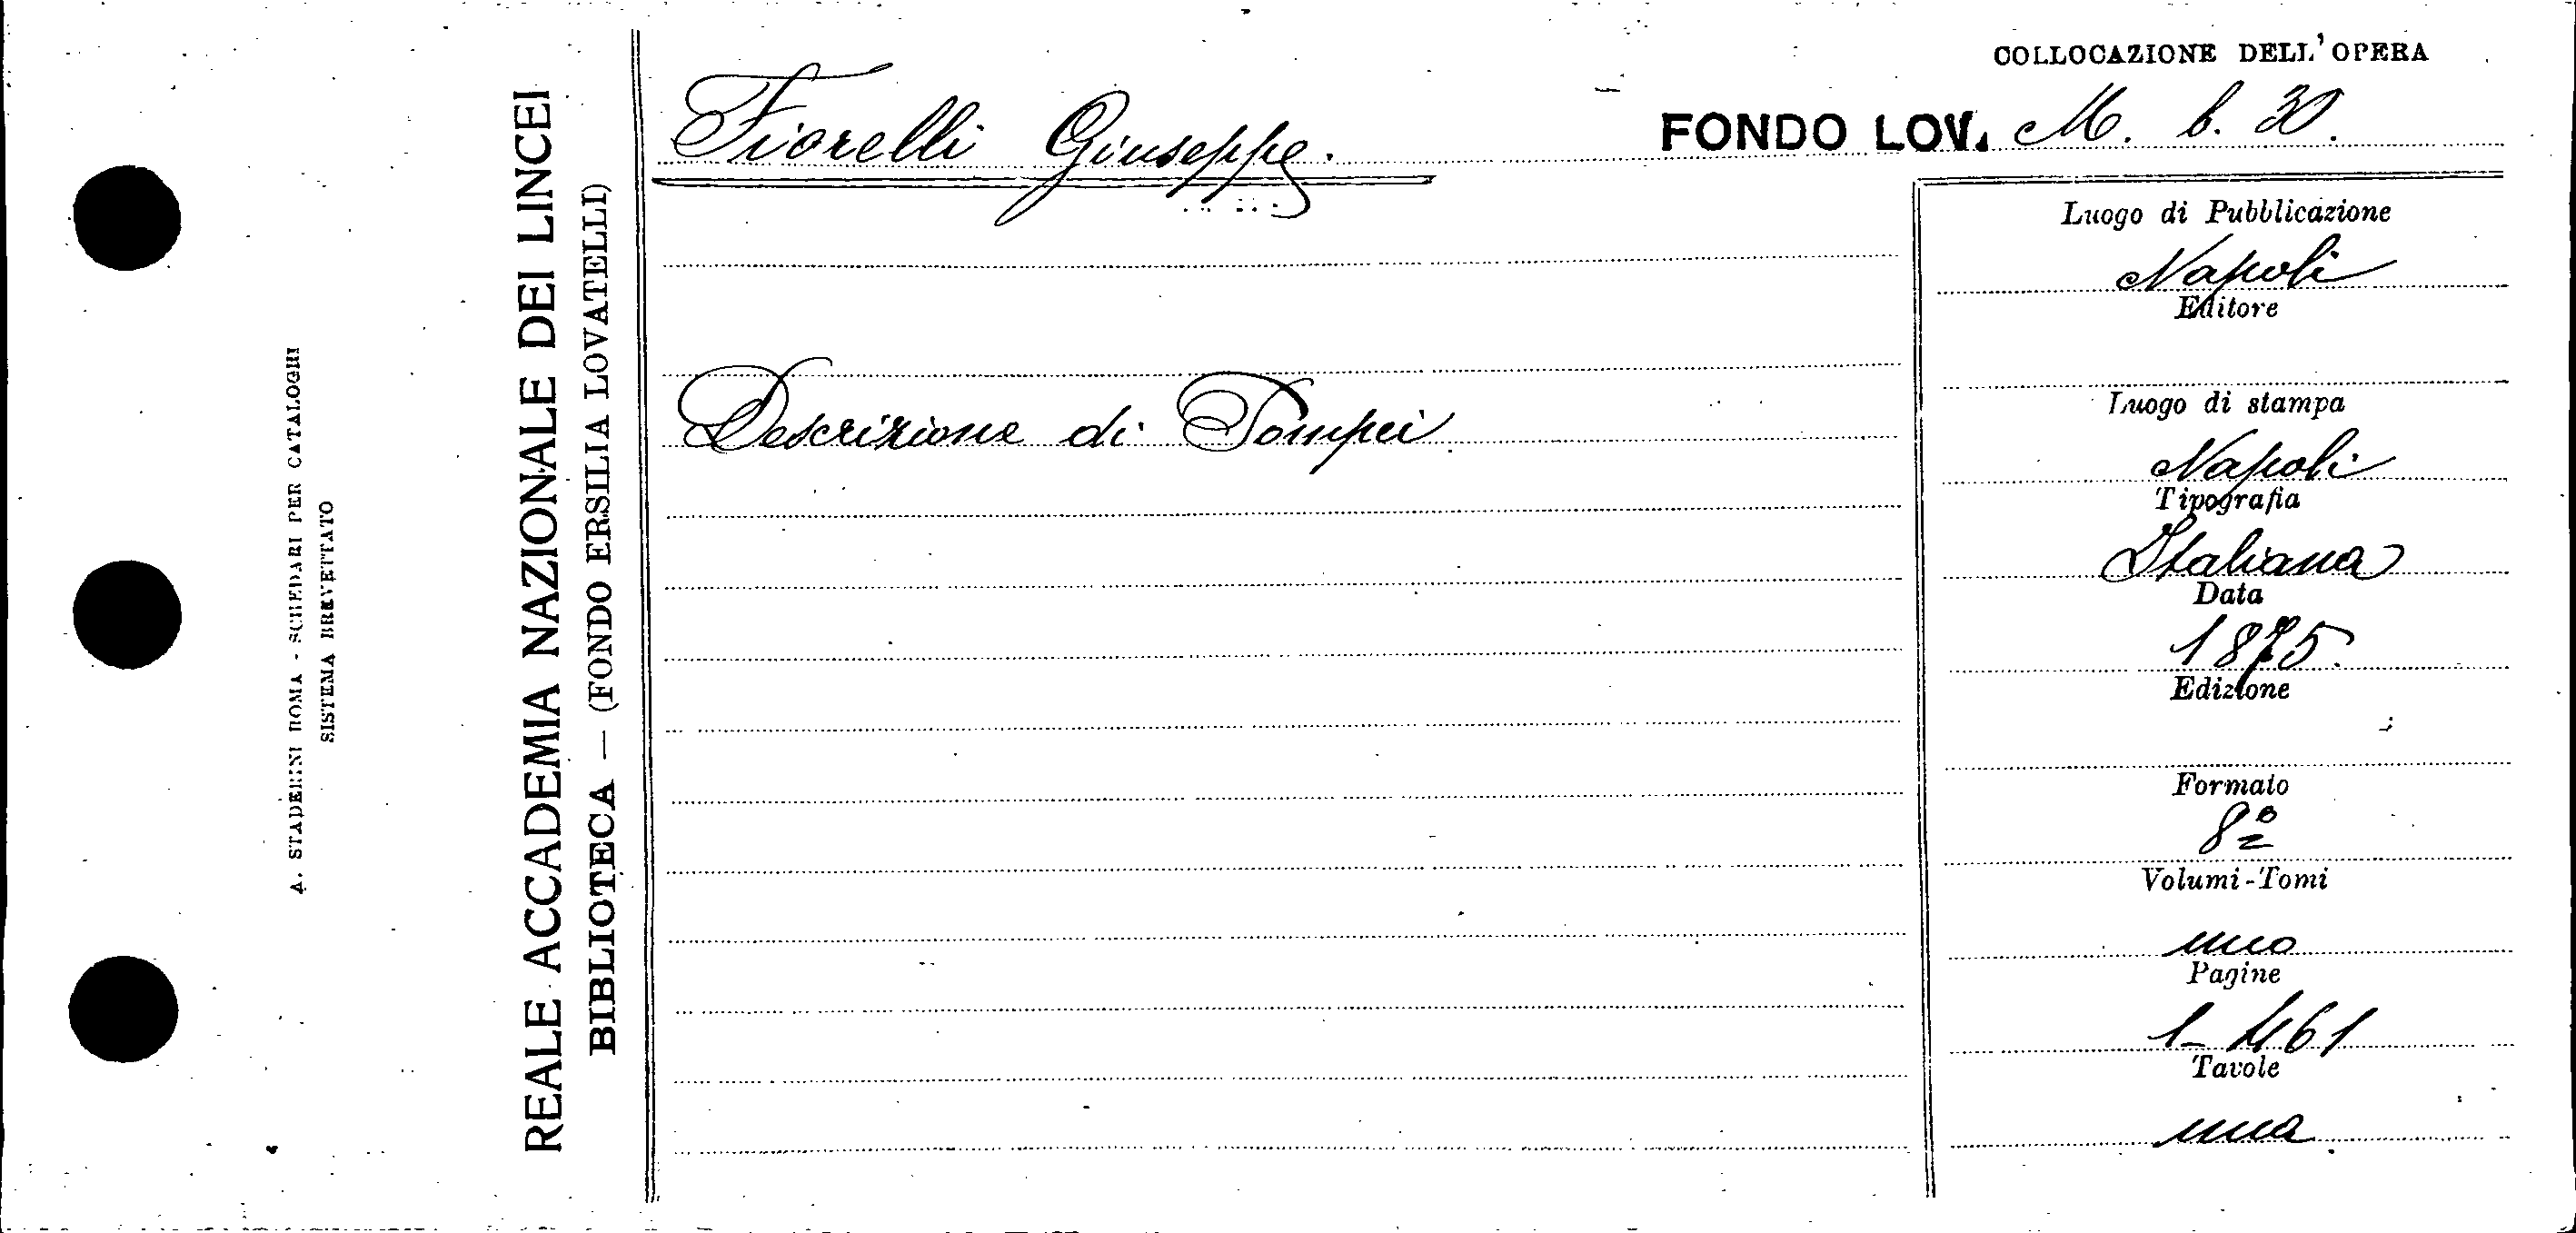 A. STADERINI ROMA - SCHEDARI PER CATALOGHI
SISTEMA BREVETTATO
REALE ACCADEMIA NAZIONALE DEI LINCEI
BIBLIOTECA — (FONDO ERSILIA LOVATELLI)
COLLOCAZIONE DELL'OPERA
FONDO LOV. M. b. 30.
Fiorelli Giuseppe.
Descrizione di Pompei
Luogo di Pubblicazione
Napoli
Editore
Luogo di stampa
Napoli
Tipografia
Italiana
Data
1875.
Edizione
Formato
8º
Volumi-Tomi
uno
Pagine
1-461
Tavole
una